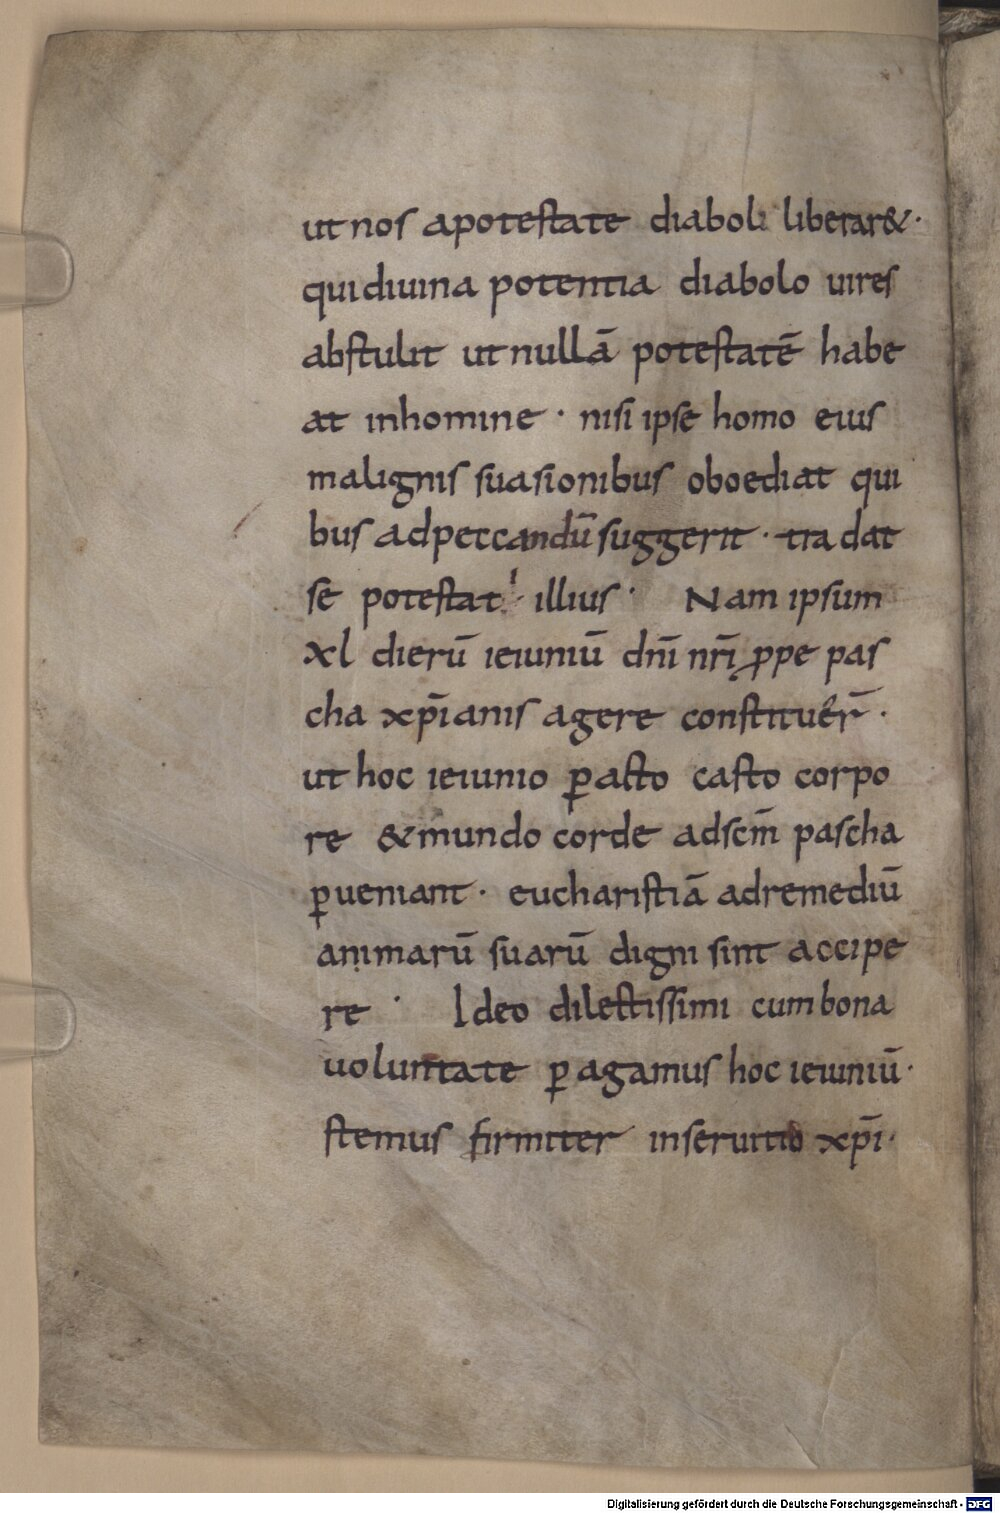 ut nos apotestate diaboli liberar&·
qui diuina potentia diabolo uires
abstulit ut nullā potestatē habe
at inhomine · nisi ipse homo eius
malignis suasionibus oboediat qui
bus adpeccandū suggerit · tradat
se potestati illius · Nam ipsum
xl dierū ieiuniū dn̄i nr̄i ꝓpe pas
cha xp̄ianis agere constituer̄ ·
ut hoc ieiunio ꝑacto casto corpo
re &mundo corde adscm̄ pascha
ꝑueniant · eucharistiā adremediū
animarū suarū digni sint accipe
re · Ideo dilectissimi cum bona
uoluntate ꝑagamus hoc ieiuniū·
stemus firmiter inseruitio xp̄i·
Digitalisierung gefördert durch die Deutsche Forschungsgemeinschaft - DFG